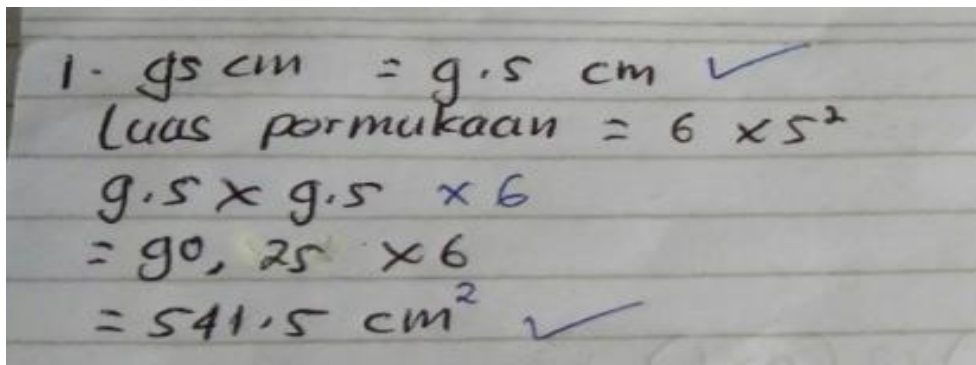 1. 95 cm = 9.5 cm ✓
Luas pormukaan = 6 x s²
9.5 x 9.5 x 6
= 90,25 x 6
= 541.5 cm² ✓